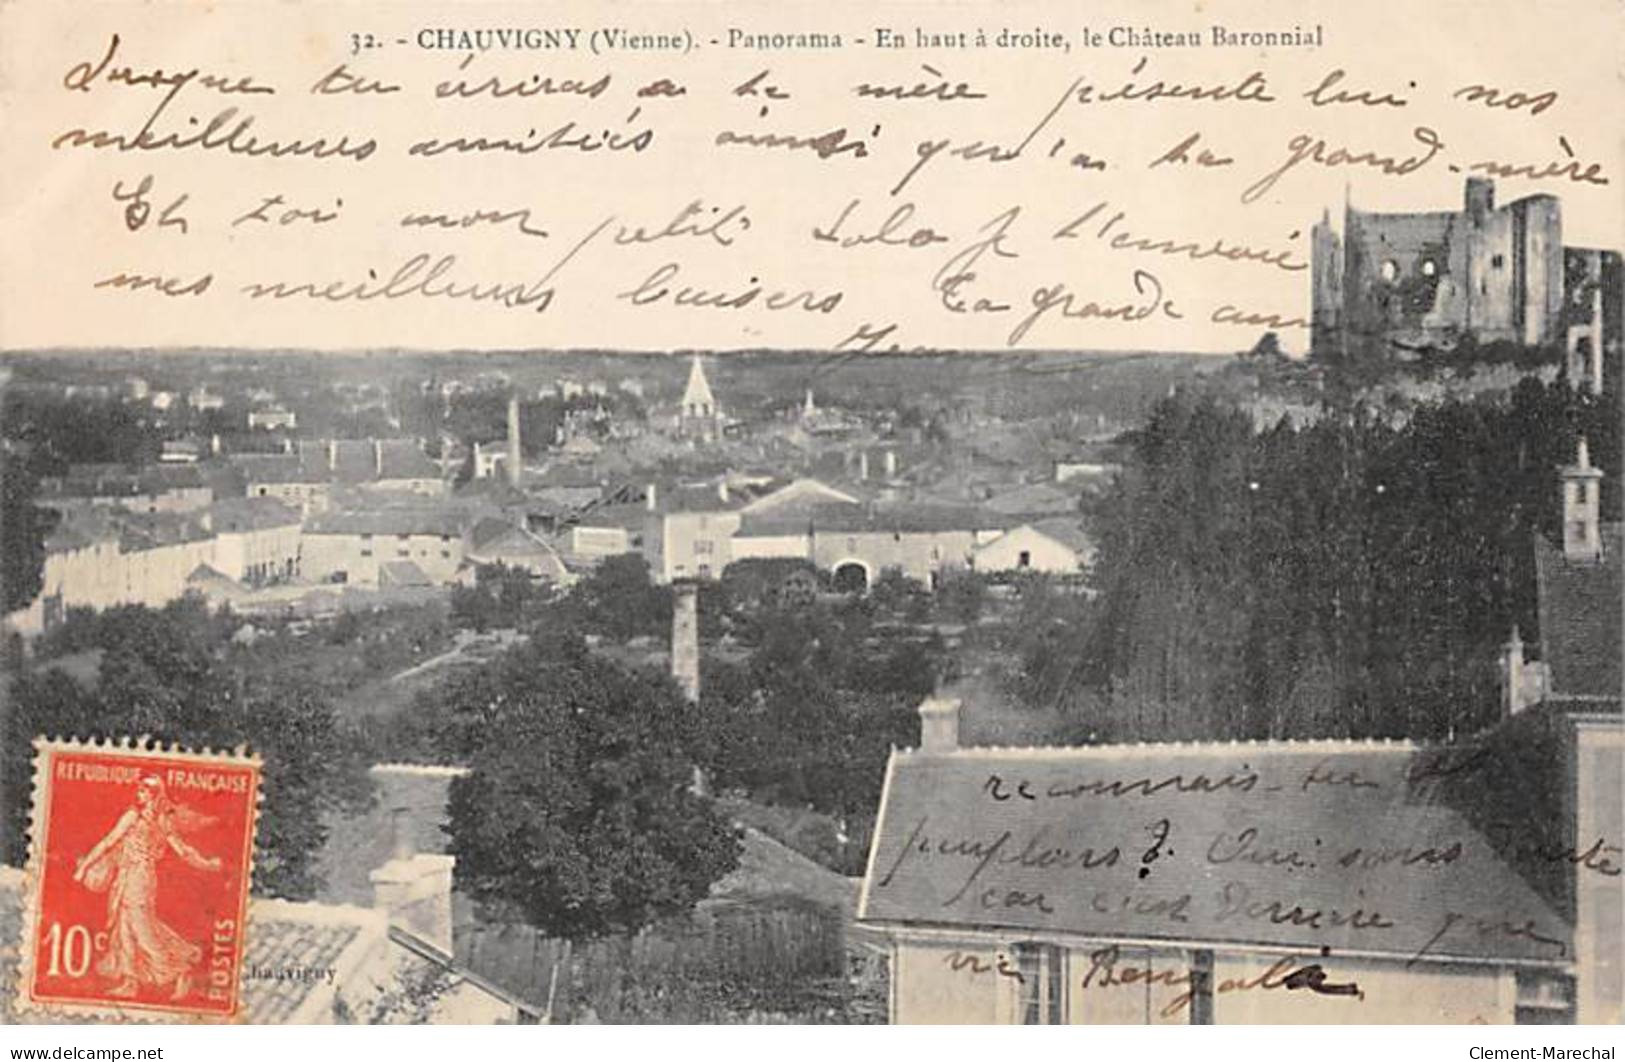 32. - CHAUVIGNY (Vienne). - Panorama - En haut à droite, le Château Baronnial
Lorsque tu écriras a ta mère présente lui nos
meilleures amitiés ainsi qu'a ta grand-mère
Et toi mon petit Lolo je t'envoie
mes meilleurs baisers Ta grande amie
reconnais-tu
peupliers ? Oui sans doute
car c'est derrière que
vie Bengali
REPUBLIQUE FRANÇAISE
10c
POSTES
Chauvigny
delcampe.net
Clement-Marechal